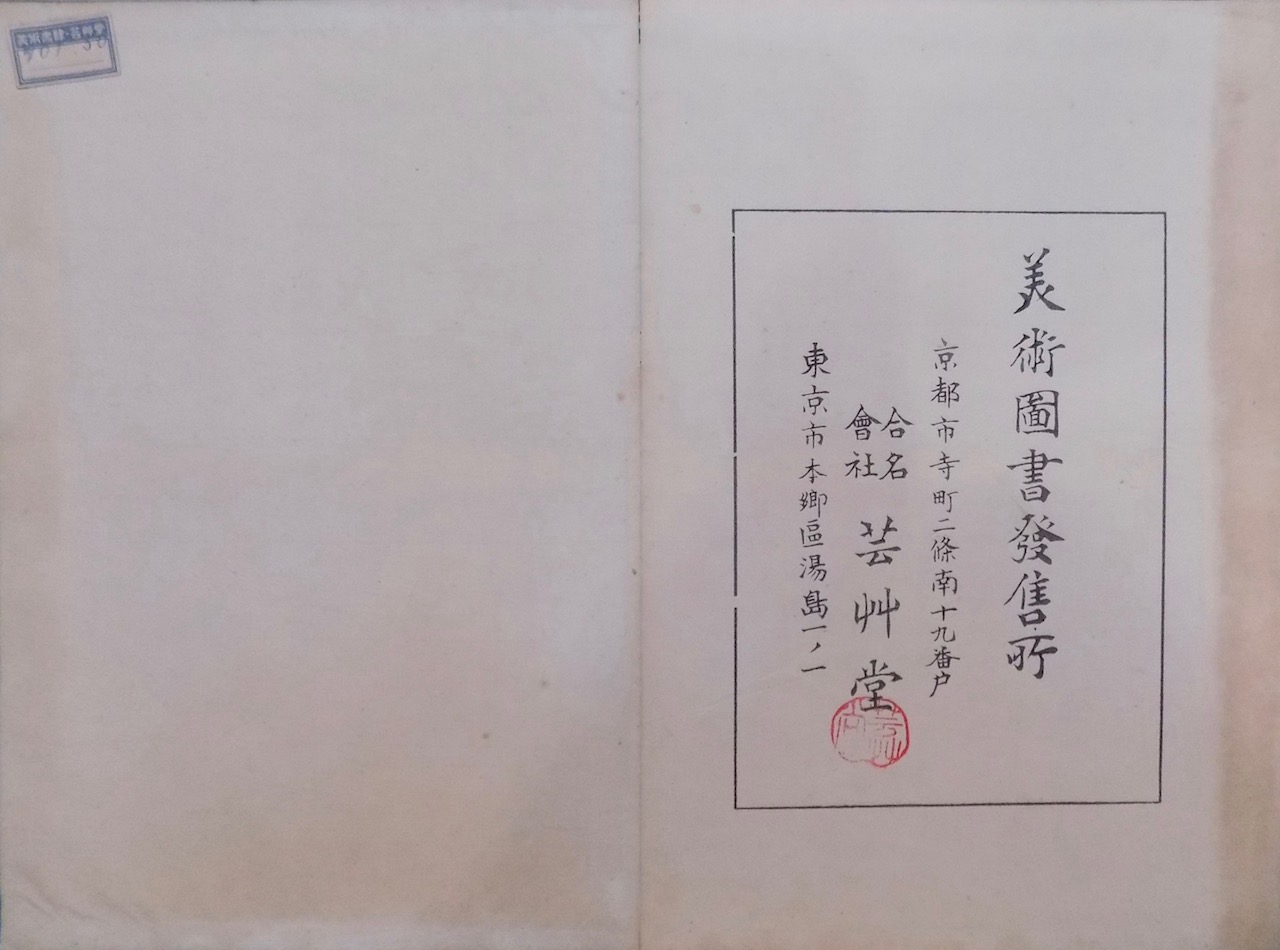 美術圖書發售所
京都市寺町二條南十九番戸
合名
會社
芸艸堂
東京市本郷區湯島一ノ一
芸艸堂